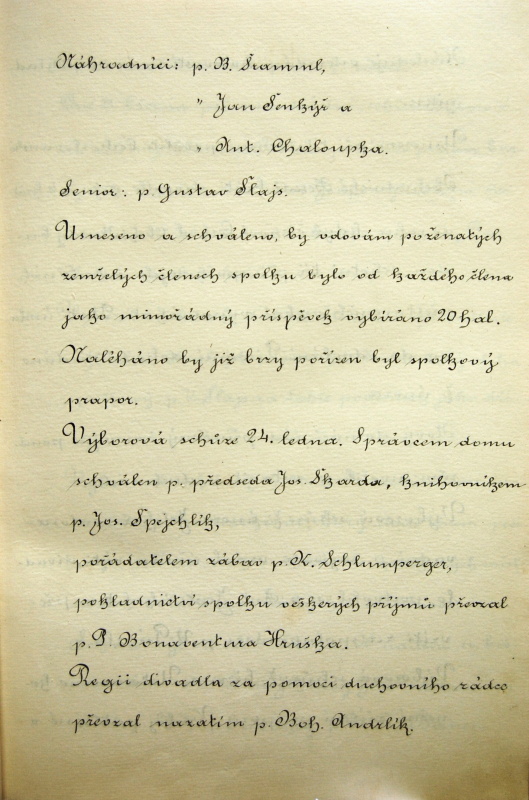 Náhradníci: p. B. Šramml,
" Jan Šenkýř a
" Ant. Chaloupka.
Senior: p. Gustav Šlajs.
Usneseno a schváleno, by vdovám po ženatých
zemřelých členech spolku bylo od každého člena
jako mimořádný příspěvek vybíráno 20 hal.
Naléháno by již brzy pořízen byl spolkový
prapor.
Výborová schůze 24. ledna. Správcem domu
schválen p. předseda Jos. Škarda, knihovníkem
p. Jos. Špejchlík,
pořádatelem zábav p. K. Schlumperger,
pokladnictví spolku veškerých příjmů převzal
p. P. Bonaventura Hruška.
Regii divadla za pomoci duchovního rádce
převzal nazatím p. Boh. Andrlík.